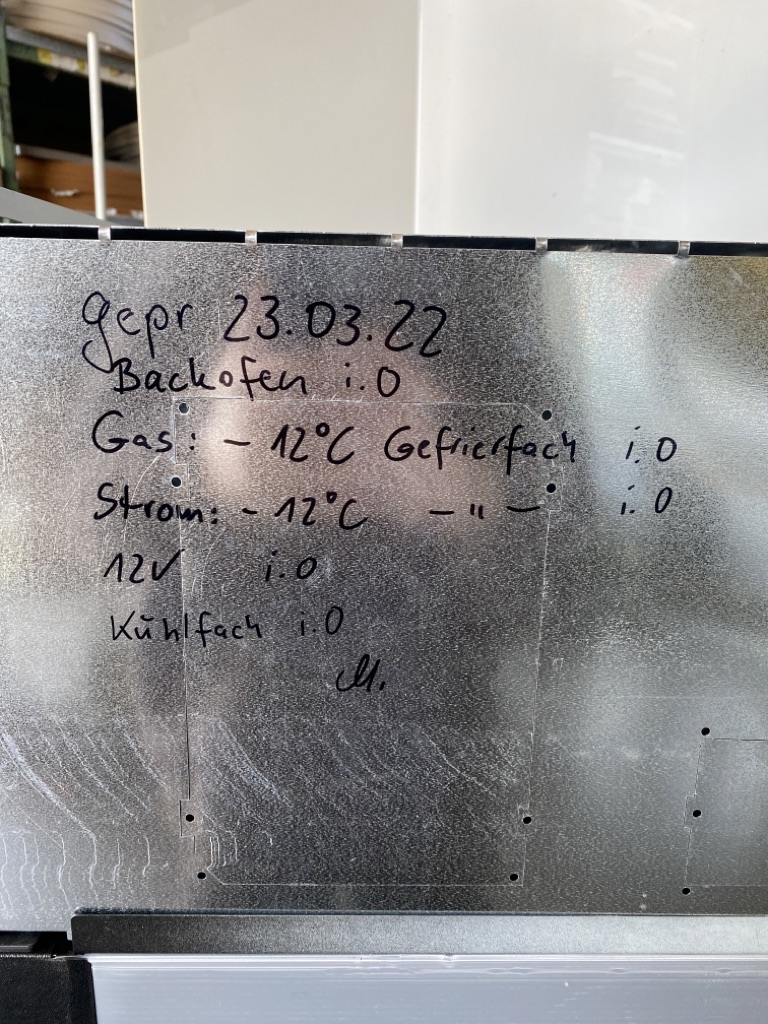 gepr 23.03.22
Backofen i.O
Gas: - 12°C Gefrierfach i.O
Strom: - 12°C - " - i.O
12V i.O
Kühlfach i.O
M.